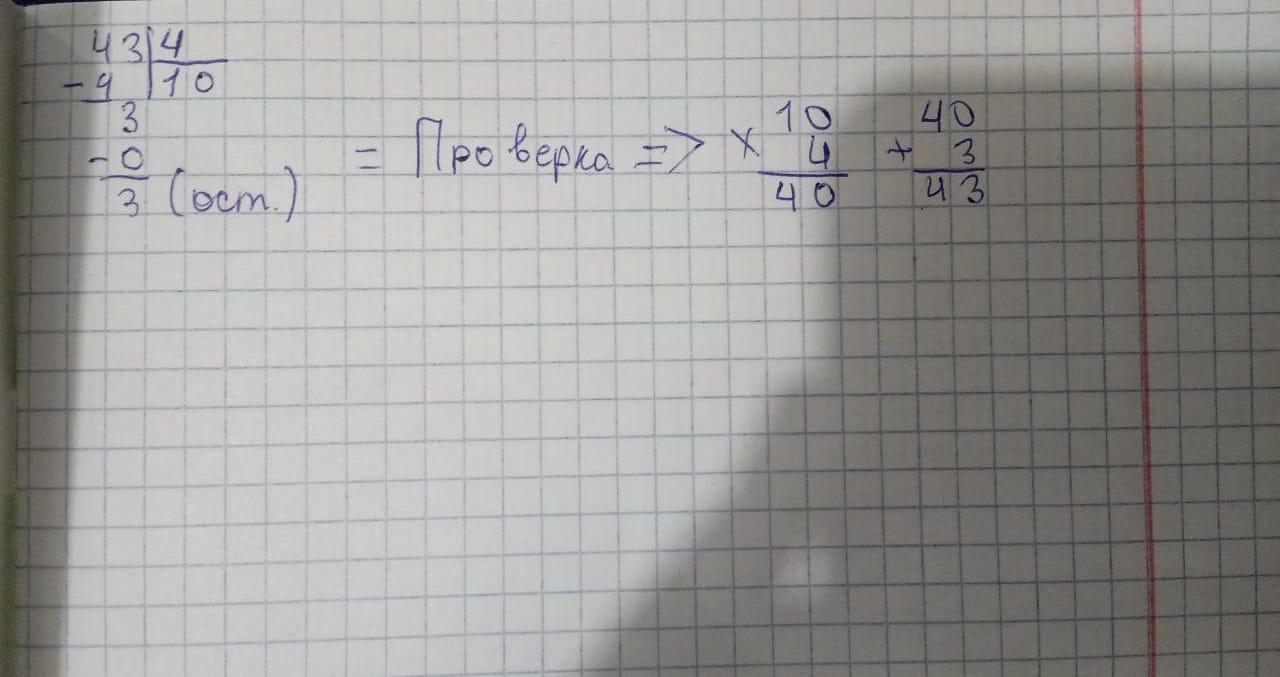 43|4
-4 |10
3
-0
3 (ост.)
= Проверка => × 10
4
40
+ 40
3
43